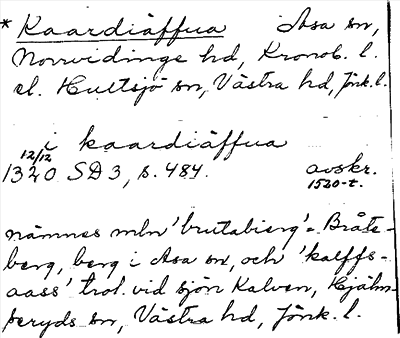 * Kaardiäffua Asa sn,
Norrvidinge hd, Kronob. l.
el. Hultsjö sn, Västra hd, Jönk. l.
i kaardiäffua
12/12
1320 SD 3, s. 484. avskr.
1520-t.
nämnes mln 'brutabierg' = Bråte-
berg, berg i Asa sn, och 'kalffs-
aass' trol. vid sjön Kalven, Hjälm-
seryds sn, Västra hd, Jönk. l.